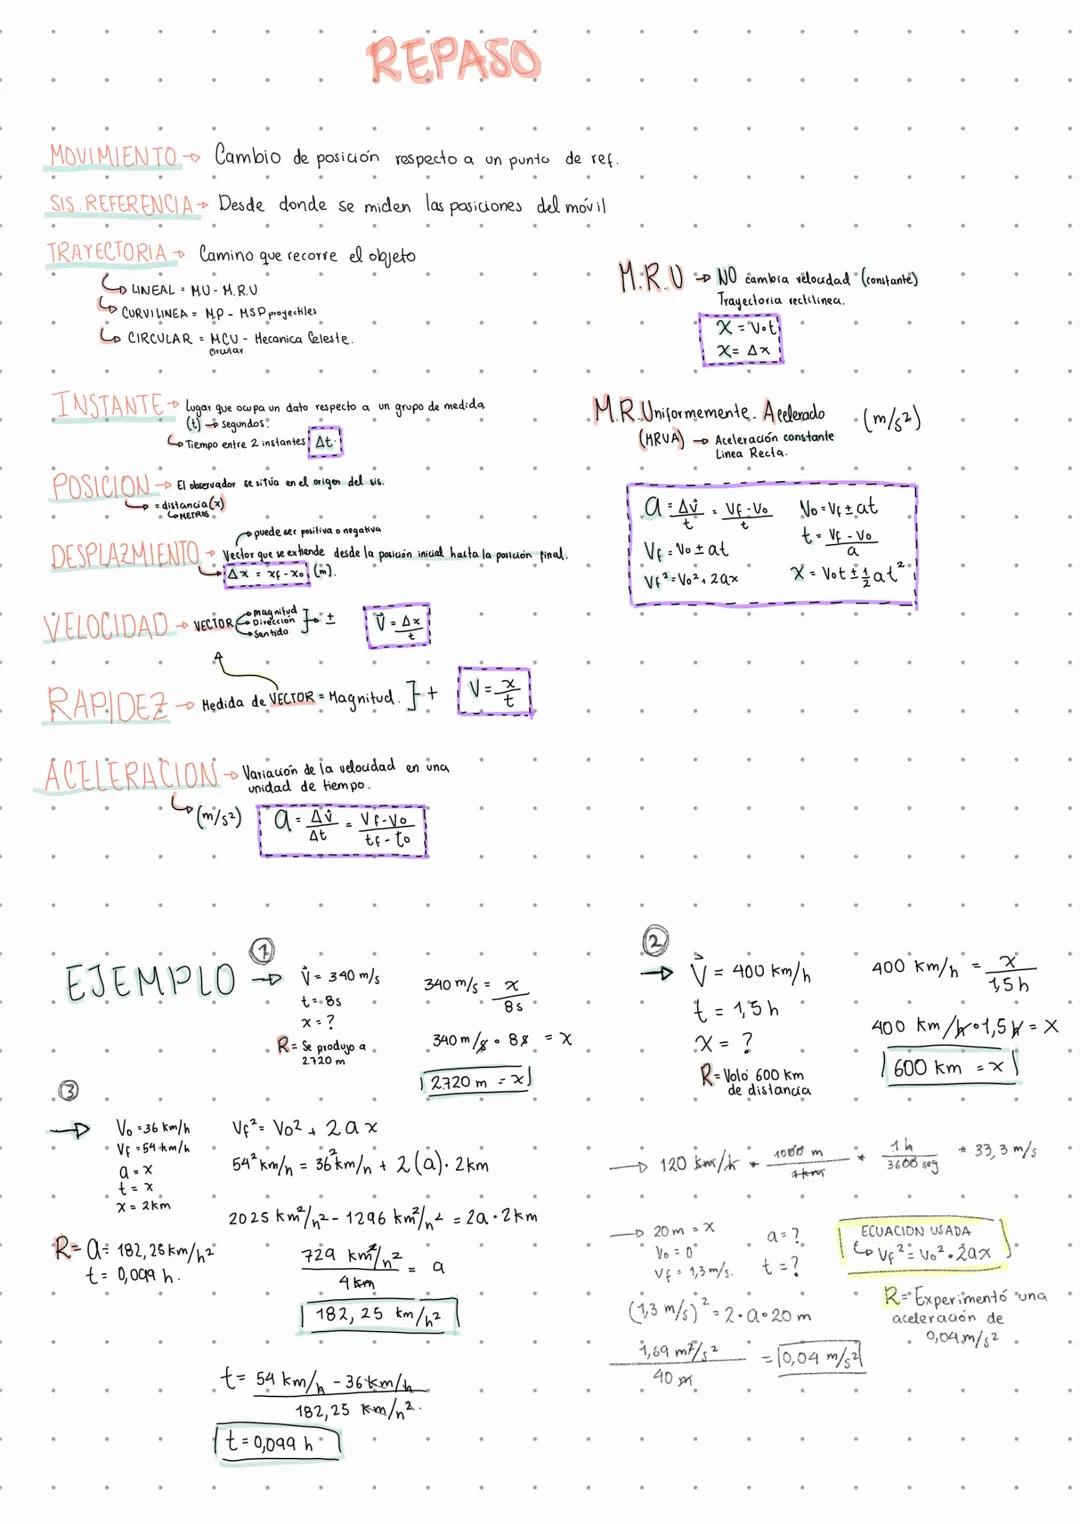 REPASO
MOVIMIENTO → Cambio de posición respecto a un punto de ref.
SIS. REFERENCIA → Desde donde se miden las posiciones del móvil
TRAYECTORIA → Camino que recorre el objeto
↳ LINEAL = MU - M.R.U
↳ CURVILINEA = M.P - MSP proyectiles
↳ CIRCULAR = MCU - Mecanica Celeste.
Circular
INSTANTE → Lugar que ocupa un dato respecto a un grupo de medida
(t) → segundos.
↳ Tiempo entre 2 instantes Δt
POSICION → El observador se situa en el origen del sis.
↳ = distancia (x)
↳ METROS
→ puede ser positiva o negativa
DESPLAZMIENTO → Vector que se extiende desde la posición inicial hasta la posición final.
↳ Δx = xf - xo (m).
VELOCIDAD → VECTOR → magnitud → Dirección → Sentido } → ± V⃗ = Δx / t
RAPIDEZ → Medida de VECTOR = Magnitud. } + V = x / t
ACELERACION → Variación de la velocidad en una
unidad de tiempo.
↳ (m/s²) a = Δv⃗ / Δt = Vf - Vo / tf - to
M.R.U → NO cambia velocidad (constante)
Trayectoria rectilinea.
X = V·t
X = Δx
M.R.Uniformemente. Acelerado (m/s²)
(MRVA) → Aceleración constante
Linea Recta.
a = Δv⃗ / t = Vf - Vo / t Vo = Vf ± at
Vf = Vo ± at t = Vf - Vo / a
Vf² = Vo² + 2ax X = Vot ± ½at²
EJEMPLO
①
→ V⃗ = 340 m/s
t = 8s
x = ?
R = Se produjo a
2720 m
340 m/s = x / 8s
340 m/s · 8s = x
2720 m = x
②
→ V⃗ = 400 km/h
t = 1,5 h
X = ?
R = Voló 600 km
de distancia
400 km/h = x / 1,5h
400 km/h · 1,5 h = X
600 km = x
③
→ Vo = 36 km/h
Vf = 54 km/h
a = x
t = x
X = 2km
R = a = 182,25 km/h²
t = 0,099 h.
Vf² = Vo² + 2ax
54² km/h = 36² km/h + 2(a)·2km
2025 km²/h² - 1296 km²/h² = 2a·2km
729 km²/h² / 4 km = a
182,25 km/h²
t = 54 km/h - 36 km/h / 182,25 km/h².
t = 0,099 h
→ 120 km/h * 1000 m / 1 km * 1 h / 3600 seg = 33,3 m/s
→ 20 m = X a = ?
Vo = 0
Vf = 1,3 m/s. t = ?
(1,3 m/s)² = 2·a·20 m
1,69 m²/s² / 40 m = 0,04 m/s²
ECUACION USADA
↳ Vf² = Vo² · 2ax
R = Experimentó una
aceleración de
0,04 m/s²